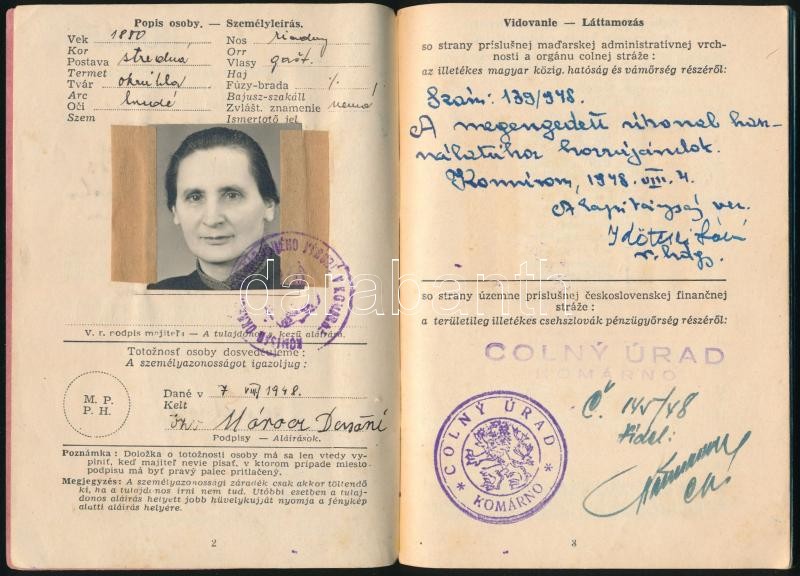 Popis osoby. — Személyleírás.
Vek 1880
Kor
Postava stredná
Termet
Tvár okrúhla
Arc
Oči hnedé
Szem
Nos riadny
Orr
Vlasy gašt.
Haj
Fúzy-brada
Bajusz-szakáll
Zvlášt. znamenie nemá
Ismertető jel
V. r. podpis majiteľa — A tulajdonos s. kezű aláírása.
Totožnosť osoby dosvedčujeme :
A személyazonosságot igazoljug :
M. P.
P. H.
Dané v 7 VIII 1948.
Kelt
Podpisy - Aláírások.
Poznámka : Doložka o totožnosti osoby má sa len vtedy vy-
plniť, keď majiteľ nevie písať, v ktorom prípade miesto
podpisu má byť pravý palec pritlačený.
Megjegyzés: A személyazonossági záradék csak akkor töltendő
ki, ha a tulajdonos írni nem tud. Utóbbi esetben a tulaj-
donos aláírás helyett jobb hüvelykujját nyomja a fénykép
alatti aláírás helyére.
2
Vidovanie — Láttamozás
so strany príslušnej maďarskej administratívnej vrch-
nosti a orgánu colnej stráže :
az illetékes magyar közig. hatóság és vámőrség részéről:
Szám: 139/948.
A megengedett útvonal hasz-
nálatához hozzájárulok.
Komárom, 1948. VIII. 4.
A kapitányság vez.
so strany územne príslušnej československej finančnej
stráže :
a területileg illetékes csehszlovák pénzügyőrség részéről:
COLNÝ ÚRAD
KOMÁRNO
COLNÝ ÚRAD
* KOMÁRNO *
Č. 145/48
Videl:
3
darabanth